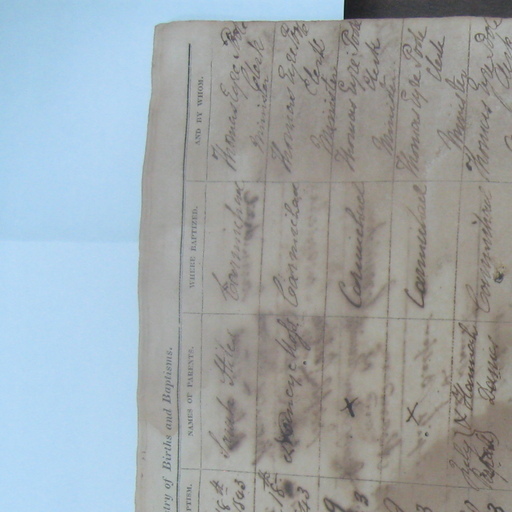 try of Births and Baptisms.
PTISM. NAMES OF PARENTS. WHERE BAPTIZED. AND BY WHOM.
8th Sarah Stiles Carmichael Thomas Eyre Poole
1843 Clerk
Minister
th Carmichael Thomas Eyre Poole
43 Clerk
Minister
9 × Carmichael Thomas Eyre Poole
3 Clerk
Minister
9 × Carmichael Thomas Eyre Poole
3 Clerk
Minister
July × Hannah Carmichael Thomas Eyre Poole
3 Davis Clerk